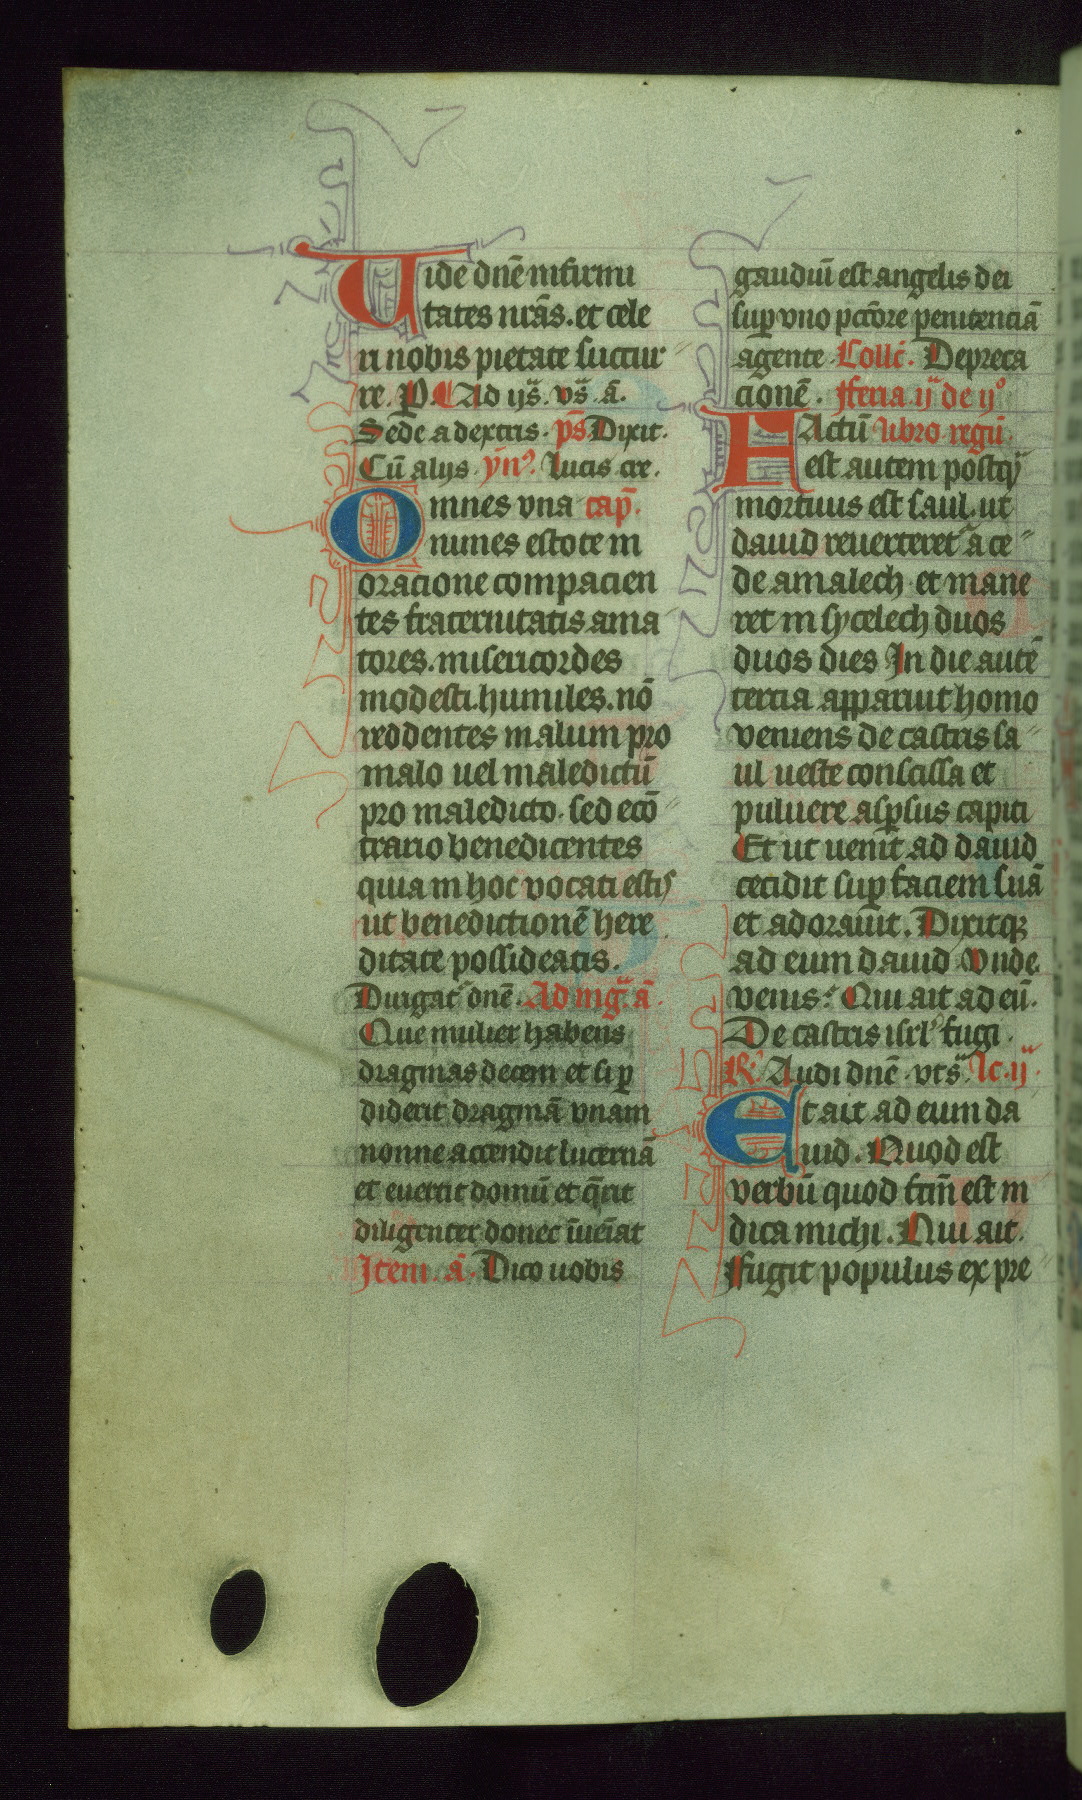 Uide dnē infirmi
tates nrās. et cele
ri nobis pietate succur
re. P. Ad iiās. vs. ā.
Sede a dextris. ps Dixit.
Cū aliis. ẏn9. Iucis cre.
Omnes vna cap̄.
nimes estote in
oracione compacien
tes fraternitatis ama
tores. misericordes
modesti. humiles. nō
reddentes malum pro
malo uel maledictū
pro maledicto. sed ecō
trario benedicentes
quia in hoc vocati estis
ut benedictionē here
ditate possideatis.
Dirigat᷑ dnē. Ad mg̃. ā.
Que mulier habens
dragmas decem et si ꝑ
diderit dragmā vnam
nonne accendit lucernā
et euertit domū et q̄rit
diligenter donec īueīat
Item. ā. Dico uobis
gaudiū est angelis dei
suꝑ vno pcc̄ore penitenciā
agente. Collc̄. Depreca
cionē. Feria. ij. de ijº
FActū libro regū.
est autem postq̄
mortuus est saul. ut
dauid reuerteret᷑ a ce
de amalech et mane
ret in sycelech duos
duos dies In die autē
tercia apparuit homo
veniens de castris sa
ul ueste conscissa et
puluere asꝑsus capiti
Et ut uenit ad dauid
cecidit suꝑ faciem suā
et adorauit. Dixitqȝ
ad eum dauid Vnde
venis. Qui ait ad eū.
De castris isrl' fugi.
R̃. Audi dnē. vts. lc. ij
Et ait ad eum da
uid. Quod est
verbū quod fcm̄ est in
dica michi. Qui ait.
Ffugit populus ex pre